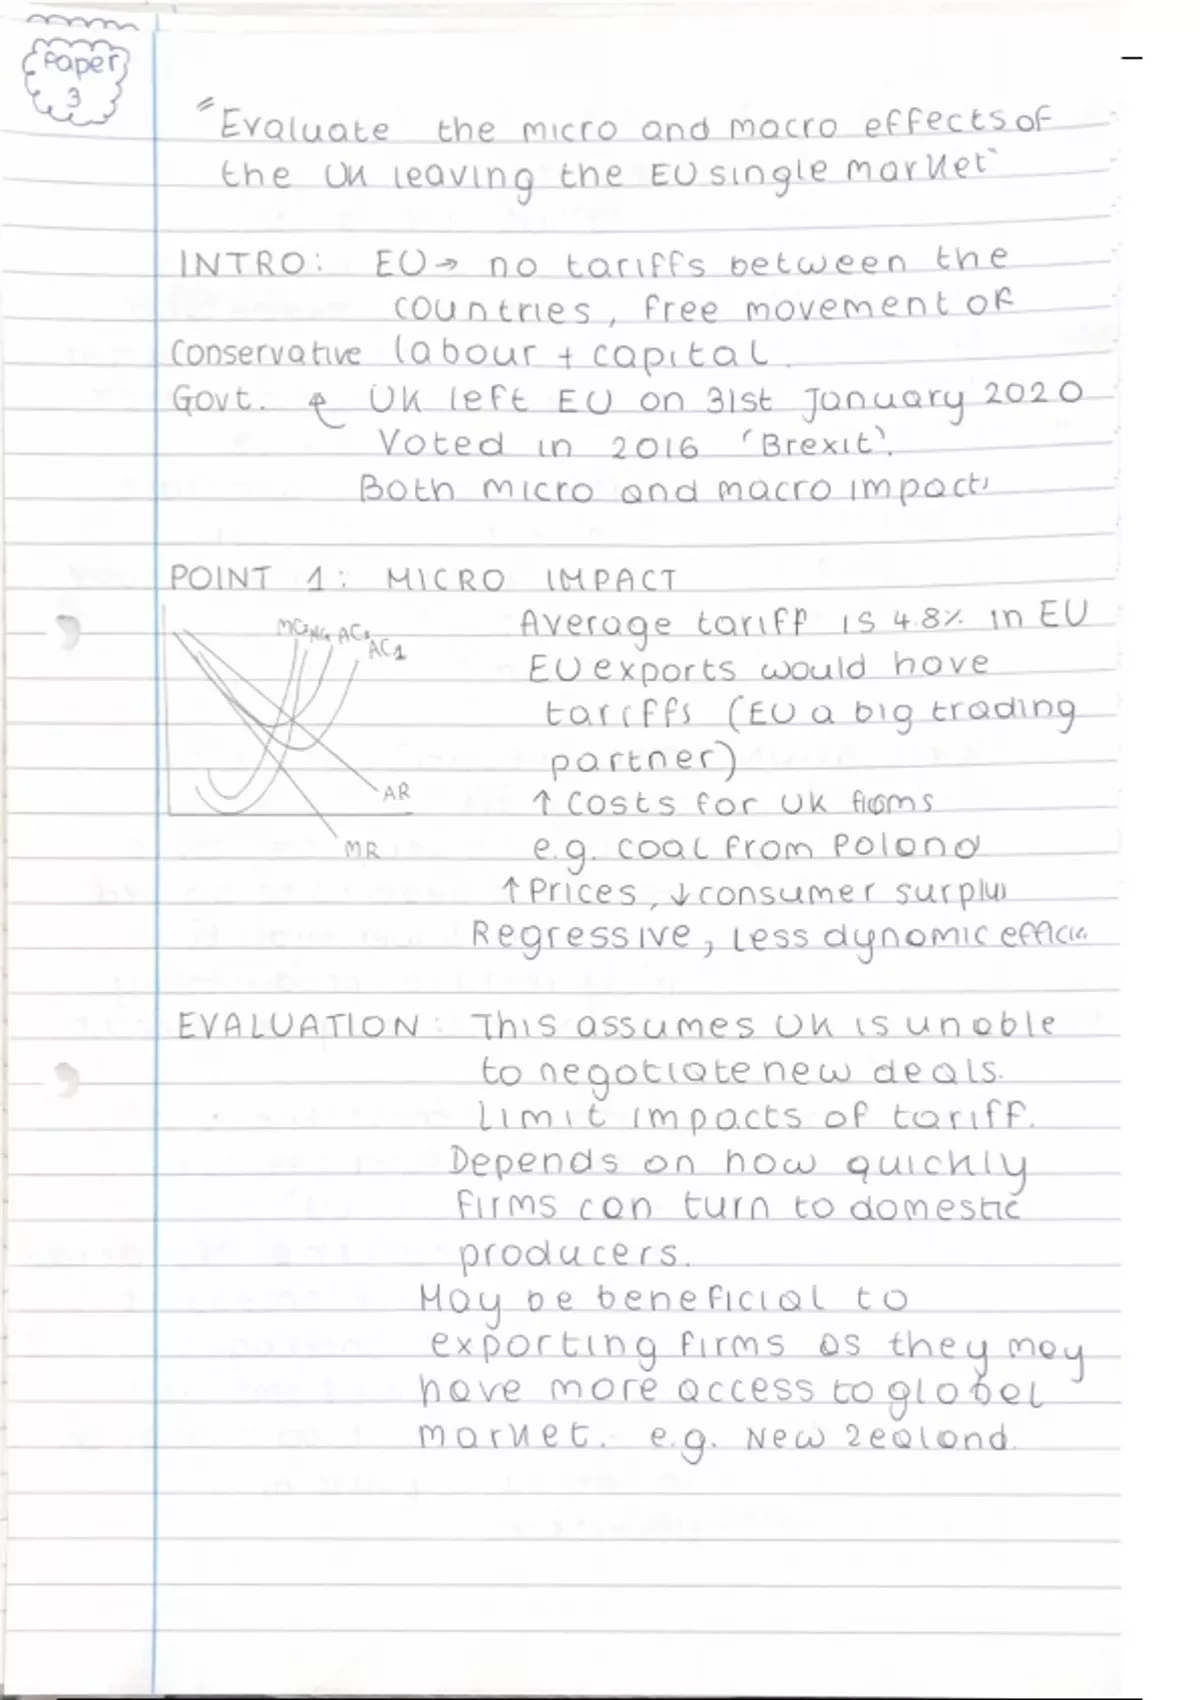 Paper
3
"Evaluate the micro and macro effects of
the UK leaving the EU single market"
INTRO: EU → no tariffs between the
countries, free movement of
Conservative labour + capital.
Govt. UK left EU on 31st January 2020
Voted in 2016 'Brexit'.
Both micro and macro impacts
POINT 1: MICRO IMPACT
Average tariff is 4.8% in EU
AC1
EU exports would have
tariffs (EU a big trading
partner)
AR
↑ Costs for UK firms
MR
e.g. coal from Poland
↑ Prices, ↓ consumer surplus
Regressive, Less dynamic
EVALUATION: This assumes UK is unable
to negotiate new deals.
Limit impacts of tariff.
Depends on how quickly
firms can turn to domestic
producers.
May be beneficial to
exporting firms as they may
have more access to global
market. e.g. New Zealand.